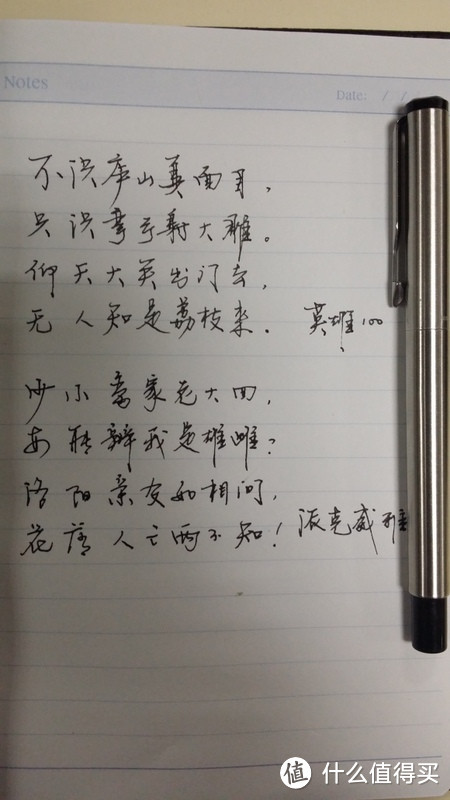 Notes
Date: / /
不识庐山真面目,
只识弯弓射大雕。
仰天大笑出门去,
无人知是荔枝来. 英雄100
少小离家老大回,
安能辨我是雄雌?
洛阳亲友如相问,
花落人亡两不知! 派克威雅
值 什么值得买